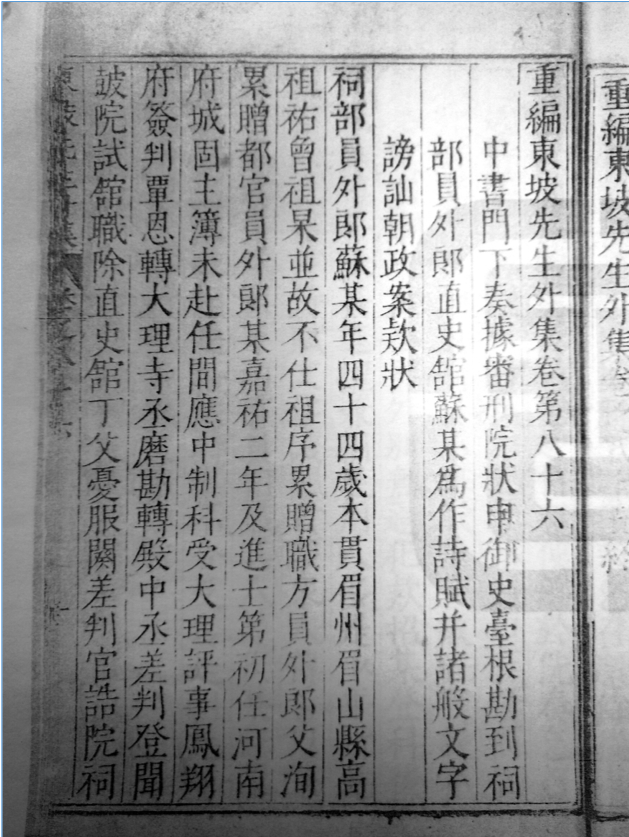 重編東坡先生外集卷第八十六
中書門下奏據審刑院狀申御史臺根勘到祠
部員外郎直史舘蘇某爲作詩賦并諸般文字
謗訕朝政案欵狀
祠部員外郎蘇某年四十四歲本貫眉州眉山縣高
祖祐曾祖杲並故不仕祖序累贈職方員外郎父洵
累贈都官員外郎某嘉祐二年及進士第初任河南
府城固主簿未赴任間應中制科受大理評事鳳翔
府簽判覃恩轉大理寺丞磨勘轉殿中丞差判登聞
皷院試舘職除直史舘丁父憂服闋差判官誥院祠